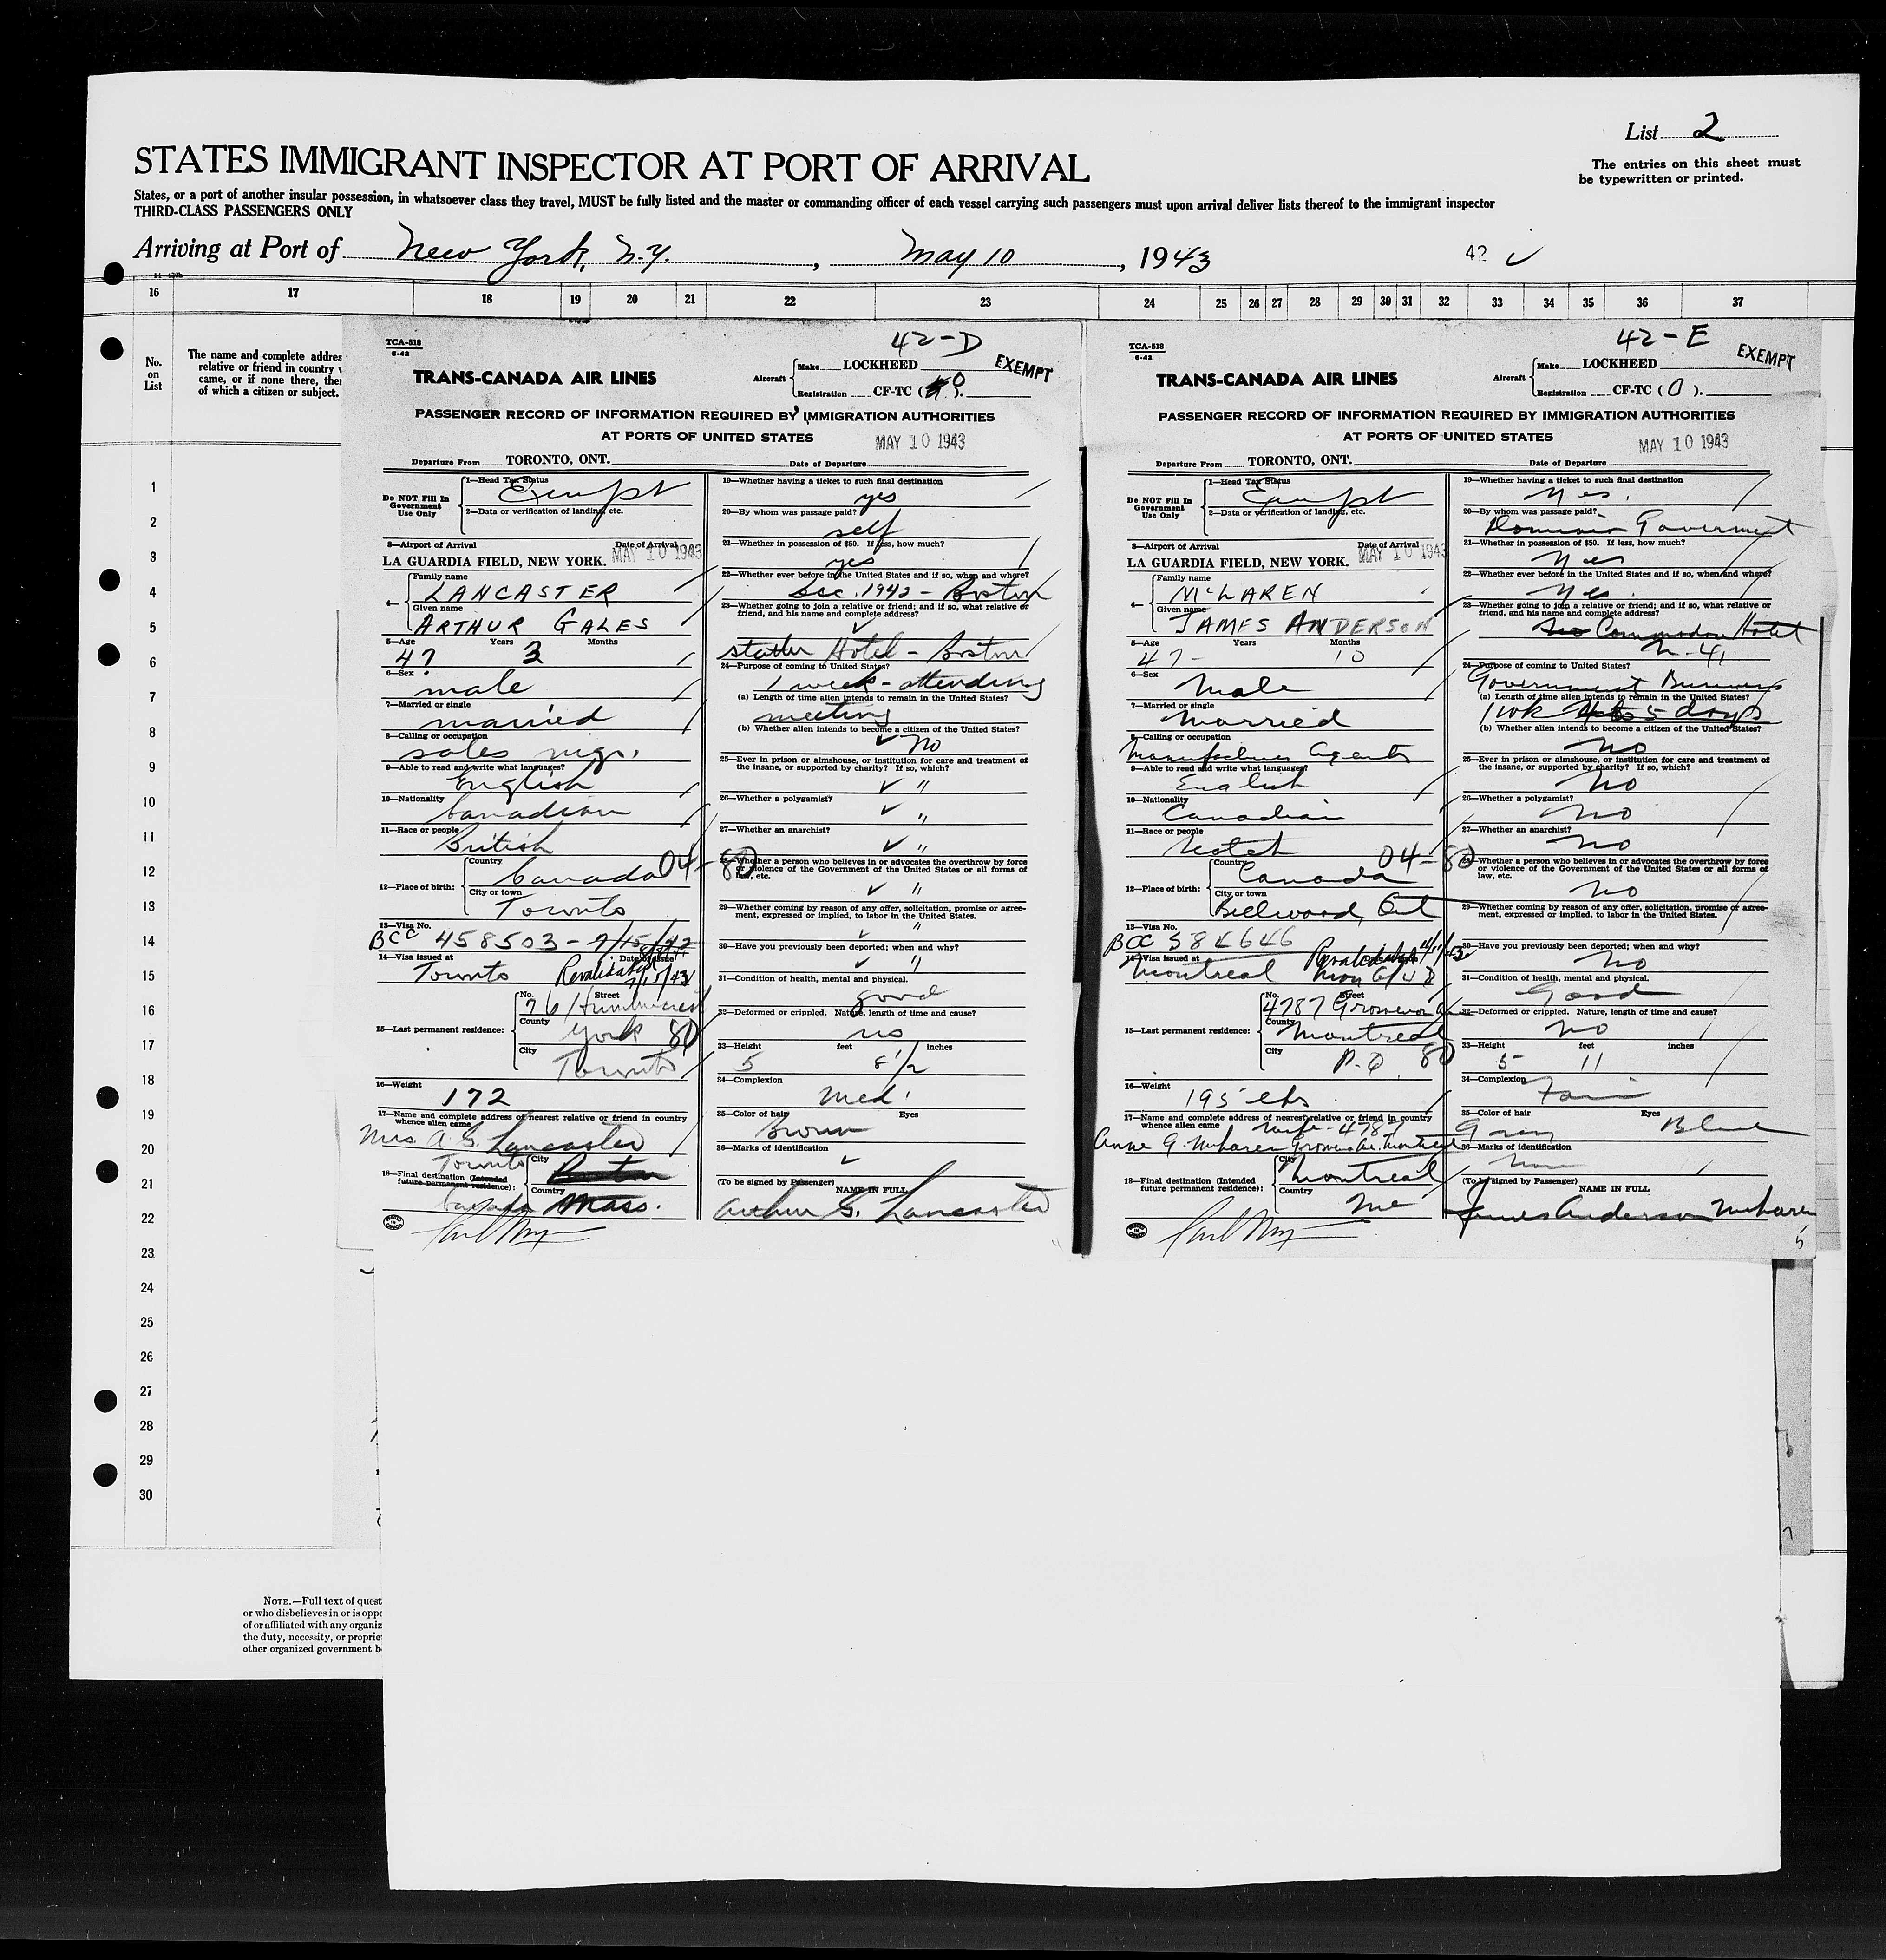 List 2
The entries on this sheet must
be typewritten or printed.
STATES IMMIGRANT INSPECTOR AT PORT OF ARRIVAL
States, or a port of another insular possession, in whatsoever class they travel, MUST be fully listed and the master or commanding officer of each vessel carrying such passengers must upon arrival deliver lists thereof to the immigrant inspector
THIRD-CLASS PASSENGERS ONLY
Arriving at Port of New York, N.Y., May 10, 1943 42 ✓
16 17 18 19 20 21 22 23 24 25 26 27 28 29 30 31 32 33 34 35 36 37
No.
on
List
The name and complete addres
relative or friend in country
came, or if none there, the
of which a citizen or subject.
1
2
3
4
5
6
7
8
9
10
11
12
13
14
15
16
17
18
19
20
21
22
23
24
25
26
27
28
29
30
NOTE.—Full text of quest
or who disbelieves in or is oppo
of or affiliated with any organiz
the duty, necessity, or proprie
other organized government b
TCA-518
6-42
42-D
EXEMPT
TRANS-CANADA AIR LINES
Aircraft
Make LOCKHEED
Registration CF-TC ( O ).
PASSENGER RECORD OF INFORMATION REQUIRED BY IMMIGRATION AUTHORITIES
AT PORTS OF UNITED STATES
MAY 10 1943
Departure From TORONTO, ONT. Date of Departure
Do NOT Fill In
Government
Use Only
1—Head Tax Status
Exempt
2—Data or verification of landing, etc.
3—Airport of Arrival Date of Arrival
LA GUARDIA FIELD, NEW YORK. MAY 10 1943
4—
Family name
LANCASTER
Given name
ARTHUR GALES
5—Age Years Months
47 3
6—Sex
male
7—Married or single
married
8—Calling or occupation
sales mgr.
9—Able to read and write what languages?
English
10—Nationality
Canadian
11—Race or people
British
12—Place of birth:
Country
Canada 04-80
City or town
Toronto
13—Visa No.
BCC 458503 - 7/15/42
14—Visa issued at Date of issue
Toronto Revalidated 7/15/43
15—Last permanent residence:
No. Street
76 Humbercrest
County
York 80
City
Toronto
16—Weight
172
17—Name and complete address of nearest relative or friend in country
whence alien came
Mrs A. G. Lancaster
Toronto
18—Final destination (Intended
future permanent residence):
City
Boston
Country
Canada Mass.
19—Whether having a ticket to such final destination
yes
20—By whom was passage paid?
self
21—Whether in possession of $50. If less, how much?
yes
22—Whether ever before in the United States and if so, when and where?
Dec. 1942 - Boston
23—Whether going to join a relative or friend; and if so, what relative or
friend, and his name and complete address?
✓
Statler Hotel - Boston
24—Purpose of coming to United States?
1 week - attending
(a) Length of time alien intends to remain in the United States?
meeting
(b) Whether alien intends to become a citizen of the United States?
✓ No
25—Ever in prison or almshouse, or institution for care and treatment of
the insane, or supported by charity? If so, which?
✓ "
26—Whether a polygamist?
✓ "
27—Whether an anarchist?
✓ "
28—Whether a person who believes in or advocates the overthrow by force
or violence of the Government of the United States or all forms of
law, etc.
✓ "
29—Whether coming by reason of any offer, solicitation, promise or agree-
ment, expressed or implied, to labor in the United States.
✓ "
30—Have you previously been deported; when and why?
✓ "
31—Condition of health, mental and physical.
good
32—Deformed or crippled. Nature, length of time and cause?
no
33—Height feet inches
5 8 1/2
34—Complexion
Med.
35—Color of hair Eyes
Brown
36—Marks of identification
✓
(To be signed by Passenger) NAME IN FULL
Arthur G. Lancaster
TCA-518
6-42
42-E
EXEMPT
TRANS-CANADA AIR LINES
Aircraft
Make LOCKHEED
Registration CF-TC ( O ).
PASSENGER RECORD OF INFORMATION REQUIRED BY IMMIGRATION AUTHORITIES
AT PORTS OF UNITED STATES
MAY 10 1943
Departure From TORONTO, ONT. Date of Departure
Do NOT Fill In
Government
Use Only
1—Head Tax Status
Exempt
2—Data or verification of landing, etc.
3—Airport of Arrival Date of Arrival
LA GUARDIA FIELD, NEW YORK. MAY 10 1943
4—
Family name
McLAREN
Given name
JAMES ANDERSON
5—Age Years Months
47 - 10
6—Sex
Male
7—Married or single
Married
8—Calling or occupation
Manufacturers Agents
9—Able to read and write what languages?
English
10—Nationality
Canadian
11—Race or people
Scotch
12—Place of birth:
Country
Canada 04-80
City or town
Bellwood, Ont
13—Visa No.
BCC 584646
14—Visa issued at
Montreal Revalidated
15—Last permanent residence:
No. Street
4787 Grosvenor Ave
County
Montreal
City
P.Q. 80
16—Weight
195 lbs
17—Name and complete address of nearest relative or friend in country
whence alien came
wife - 4787
Anne G. McLaren Grosvenor Ave. Montreal
18—Final destination (Intended
future permanent residence):
City
Montreal
Country
19—Whether having a ticket to such final destination
Yes.
20—By whom was passage paid?
Dominion Goverment
21—Whether in possession of $50. If less, how much?
Yes
22—Whether ever before in the United States and if so, when and where?
Yes.
23—Whether going to join a relative or friend; and if so, what relative or
friend, and his name and complete address?
Commodore Hotel
N-41
24—Purpose of coming to United States?
Government Business
(a) Length of time alien intends to remain in the United States?
1 wk 4 to 5 days
(b) Whether alien intends to become a citizen of the United States?
No
25—Ever in prison or almshouse, or institution for care and treatment of
the insane, or supported by charity? If so, which?
No
26—Whether a polygamist?
No
27—Whether an anarchist?
No
28—Whether a person who believes in or advocates the overthrow by force
or violence of the Government of the United States or all forms of
law, etc.
No
29—Whether coming by reason of any offer, solicitation, promise or agree-
ment, expressed or implied, to labor in the United States.
30—Have you previously been deported; when and why?
No
31—Condition of health, mental and physical.
Good
32—Deformed or crippled. Nature, length of time and cause?
No
33—Height feet inches
5 11
34—Complexion
Fair
35—Color of hair Eyes
Gray Blue
36—Marks of identification
(To be signed by Passenger) NAME IN FULL
James Anderson McLaren